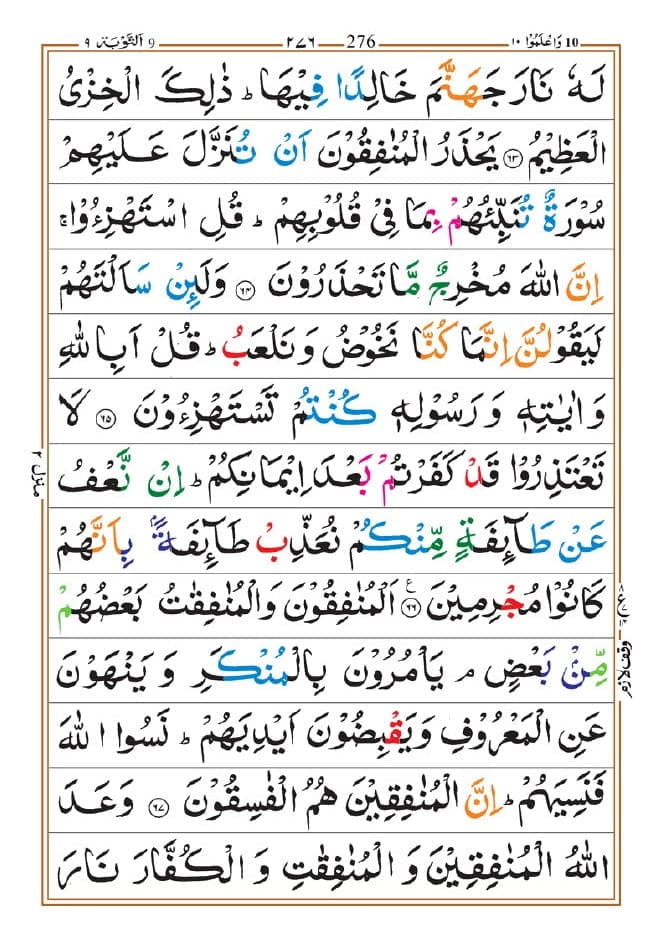 وَاعْلَمُوْٓا ١٠ 10 276 ٢٧٦ اَلتَّوْبَة ٩ 9
لَهٗ نَارَ جَهَنَّمَ خَالِدًا فِيْهَا ؕ ذٰلِكَ الْخِزْىُ
الْعَظِيْمُ ﴿۶۳﴾ يَحْذَرُ الْمُنٰفِقُوْنَ اَنْ تُنَزَّلَ عَلَيْهِمْ
سُوْرَةٌ تُنَبِّئُهُمْ بِمَا فِىْ قُلُوْبِهِمْ ؕ قُلِ اسْتَهْزِءُوْا ۚ
اِنَّ اللّٰهَ مُخْرِجٌ مَّا تَحْذَرُوْنَ ﴿۶۴﴾ وَلَئِنْ سَاَلْتَهُمْ
لَيَقُوْلُنَّ اِنَّمَا كُنَّا نَخُوْضُ وَنَلْعَبُ ؕ قُلْ اَبِاللّٰهِ
وَاٰيٰتِهٖ وَرَسُوْلِهٖ كُنْتُمْ تَسْتَهْزِءُوْنَ ﴿۶۵﴾ لَا
تَعْتَذِرُوْا قَدْ كَفَرْتُمْ بَعْدَ اِيْمَانِكُمْ ؕ اِنْ نَّعْفُ
عَنْ طَآئِفَةٍ مِّنْكُمْ نُعَذِّبْ طَآئِفَةًۢ بِاَنَّهُمْ
كَانُوْا مُجْرِمِيْنَ ﴿۶۶﴾ ع اَلْمُنٰفِقُوْنَ وَالْمُنٰفِقٰتُ بَعْضُهُمْ
مِّنْۢ بَعْضٍ ۘ يَاْمُرُوْنَ بِالْمُنْكَرِ وَيَنْهَوْنَ
عَنِ الْمَعْرُوْفِ وَيَقْبِضُوْنَ اَيْدِيَهُمْ ؕ نَسُوا اللّٰهَ
فَنَسِيَهُمْ ؕ اِنَّ الْمُنٰفِقِيْنَ هُمُ الْفٰسِقُوْنَ ﴿۶۷﴾ وَعَدَ
اللّٰهُ الْمُنٰفِقِيْنَ وَالْمُنٰفِقٰتِ وَالْكُفَّارَ نَارَ
منزل ٢
وقف لازم